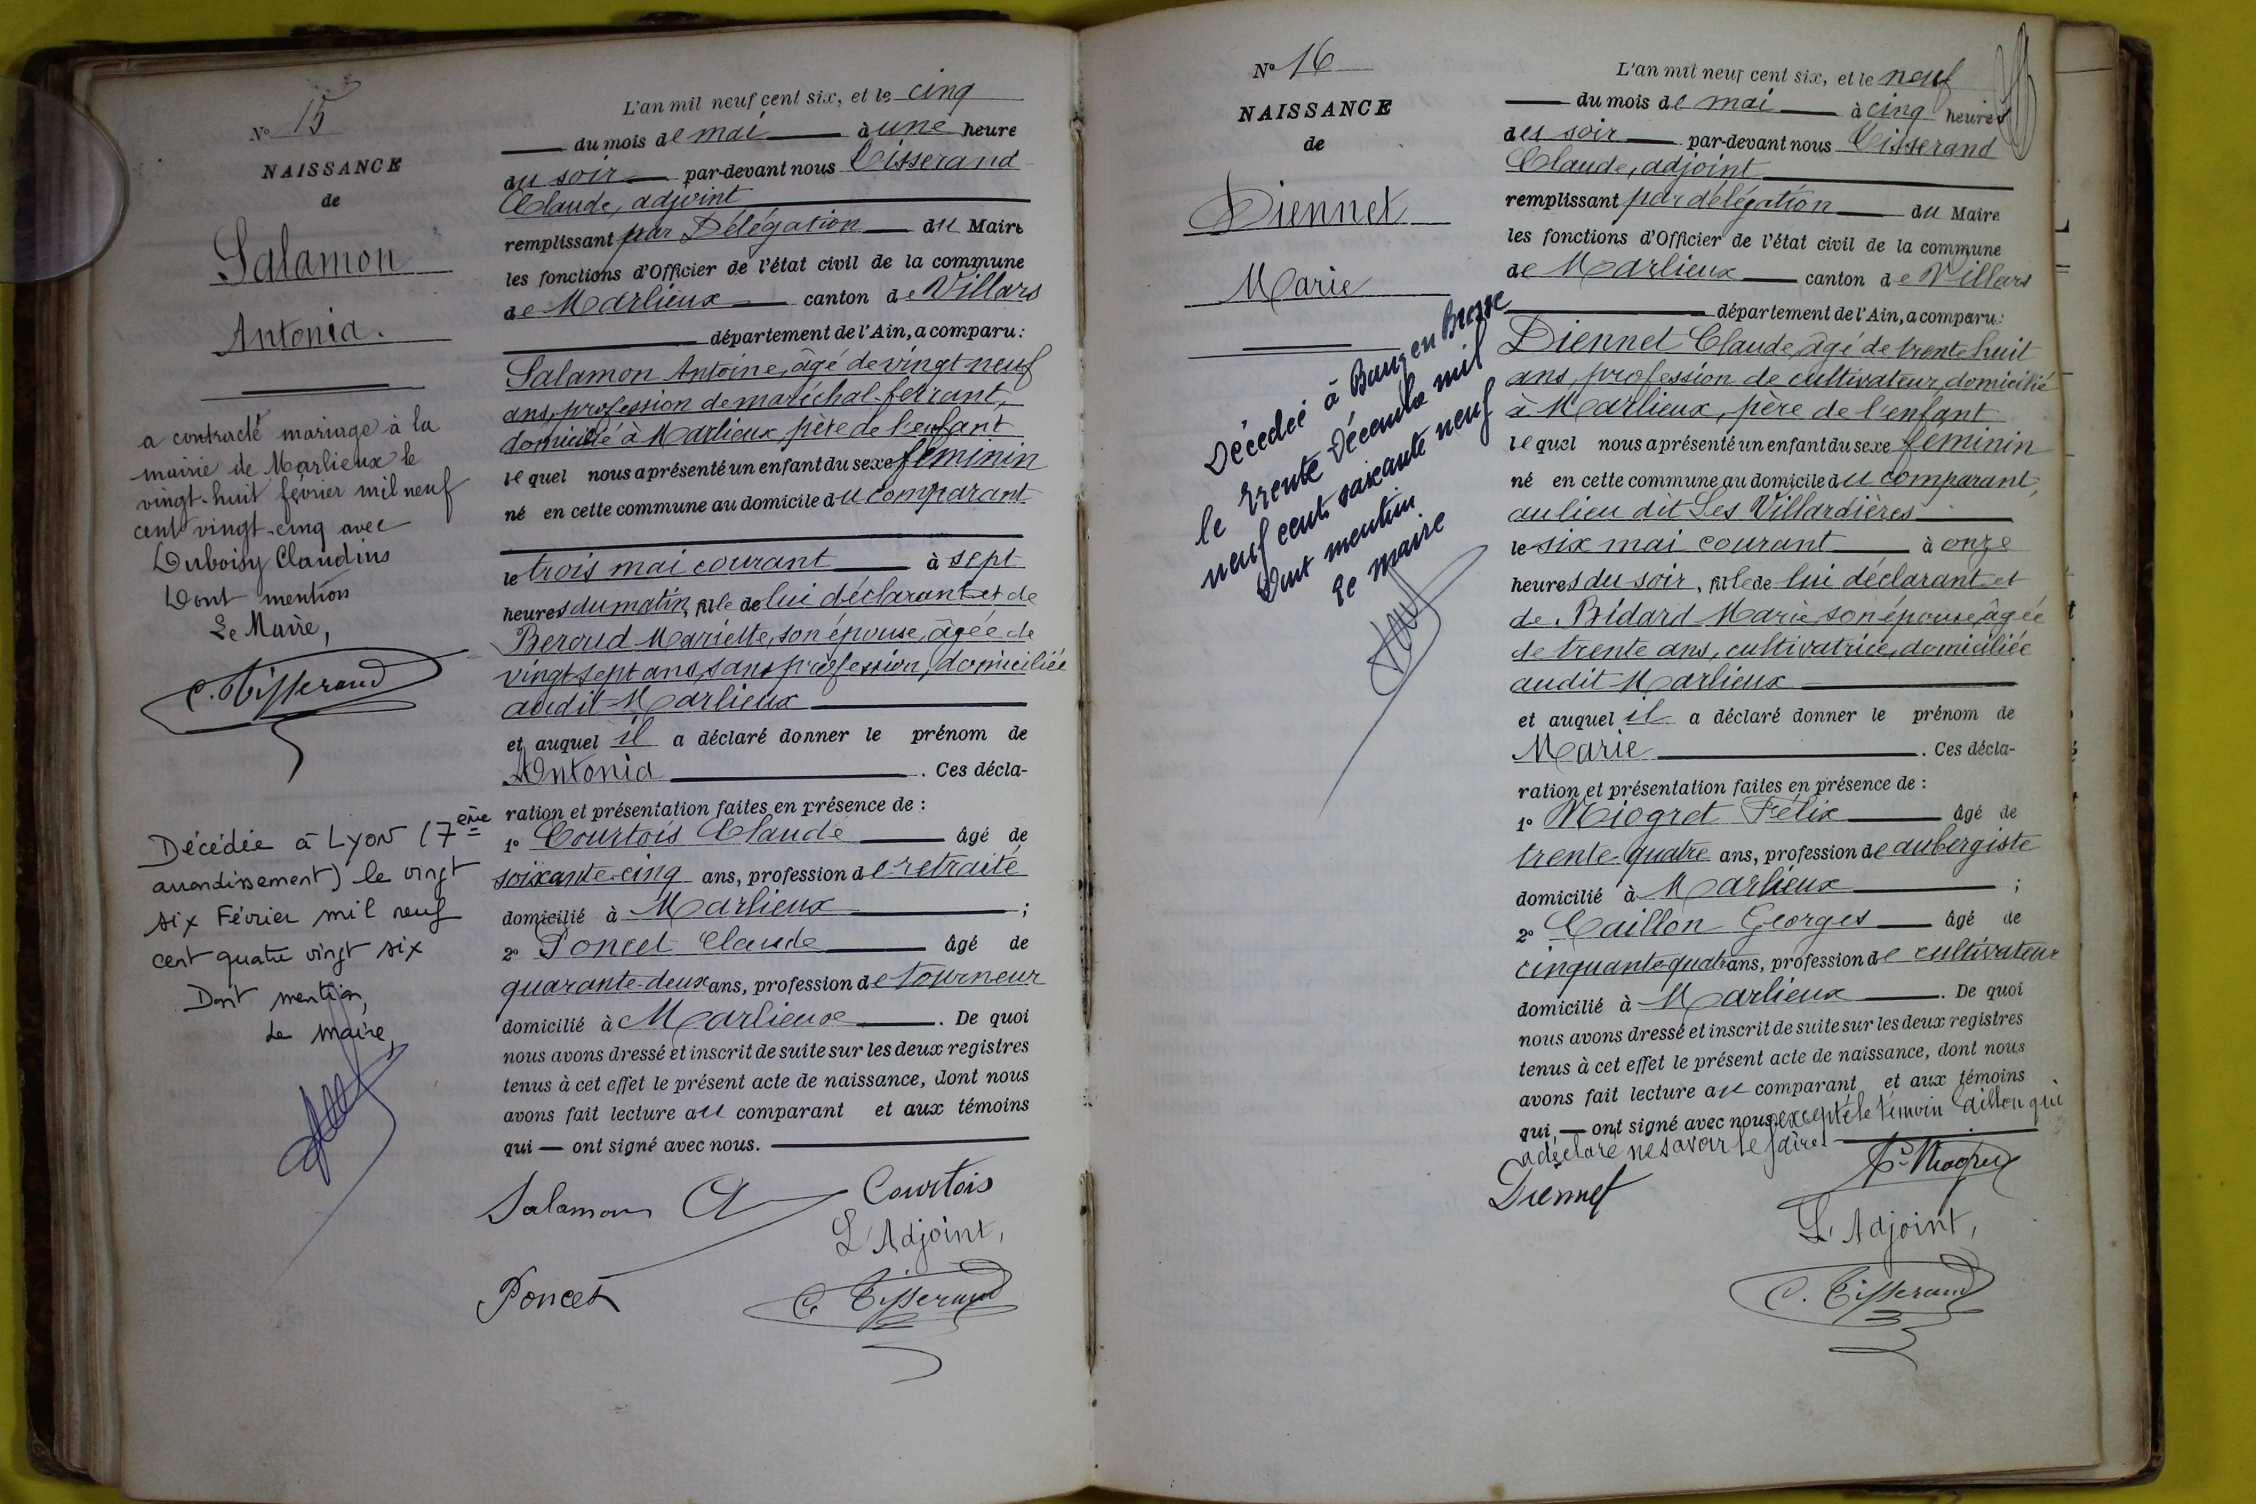 N° 15
NAISSANCE
de
Salamon
Antonia.
a contracté mariage à la
mairie de Marlieux le
vingt-huit février mil neuf
cent vingt-cinq avec
Duboisy Claudius
Dont mention
Le Maire,
C. Tisserand
Décédée à Lyon (7ème
arrondissement) le vingt
six Février mil neuf
cent quatre vingt six
Dont mention,
Le Maire,
L'an mil neuf cent six, et le cinq
du mois de mai à une heure
du soir par-devant nous Tisserand
Claude, adjoint
remplissant par Délégation du Maire
les fonctions d'Officier de l'état civil de la commune
de Marlieux canton de Villars
département de l'Ain, a comparu :
Salamon Antoine, âgé de vingt neuf
ans, profession de maréchal-ferrant,
domicilié à Marlieux, père de l'enfant
lequel nous a présenté un enfant du sexe féminin
né en cette commune au domicile du comparant
le trois mai courant à sept
heures du matin, fille de lui déclarant et de
Beroud Mariette, son épouse, âgée de
vingt sept ans, sans profession, domiciliée
audit Marlieux
et auquel il a déclaré donner le prénom de
Antonia . Ces décla-
ration et présentation faites en présence de :
1° Courtois Claude âgé de
soixante-cinq ans, profession de retraité
domicilié à Marlieux ;
2° Poncet Claude âgé de
quarante-deux ans, profession de tourneur
domicilié à Marlieux . De quoi
nous avons dressé et inscrit de suite sur les deux registres
tenus à cet effet le présent acte de naissance, dont nous
avons fait lecture au comparant et aux témoins
qui — ont signé avec nous.
Salamon A Courtois
L'Adjoint,
Poncet C. Tisserand
N° 16
NAISSANCE
de
Diennet
Marie
Décédée à Bourg en Bresse
le trente Décembre mil
neuf cent soixante neuf
Dont mention
Le Maire
L'an mil neuf cent six, et le neuf
du mois de mai à cinq heures
du soir par-devant nous Tisserand
Claude, adjoint
remplissant par délégation du Maire
les fonctions d'Officier de l'état civil de la commune
de Marlieux canton de Villars
département de l'Ain, a comparu :
Diennet Claude, âgé de trente huit
ans, profession de cultivateur, domicilié
à Marlieux, père de l'enfant
lequel nous a présenté un enfant du sexe féminin
né en cette commune au domicile du comparant,
au lieu dit Les Villardières
le six mai courant à onze
heures du soir, fille de lui déclarant et
de Bidard Marie, son épouse, âgée
de trente ans, cultivatrice, domiciliée
audit Marlieux
et auquel il a déclaré donner le prénom de
Marie . Ces décla-
ration et présentation faites en présence de :
1° Miogret Félix âgé de
trente-quatre ans, profession de aubergiste
domicilié à Marlieux ;
2° Caillon Georges âgé de
cinquante-quatre ans, profession de cultivateur
domicilié à Marlieux . De quoi
nous avons dressé et inscrit de suite sur les deux registres
tenus à cet effet le présent acte de naissance, dont nous
avons fait lecture au comparant et aux témoins
qui — ont signé avec nous, excepté le témoin Caillon qui
a déclaré ne savoir le faire.
Diennet F. Miogret
L'Adjoint,
C. Tisserand